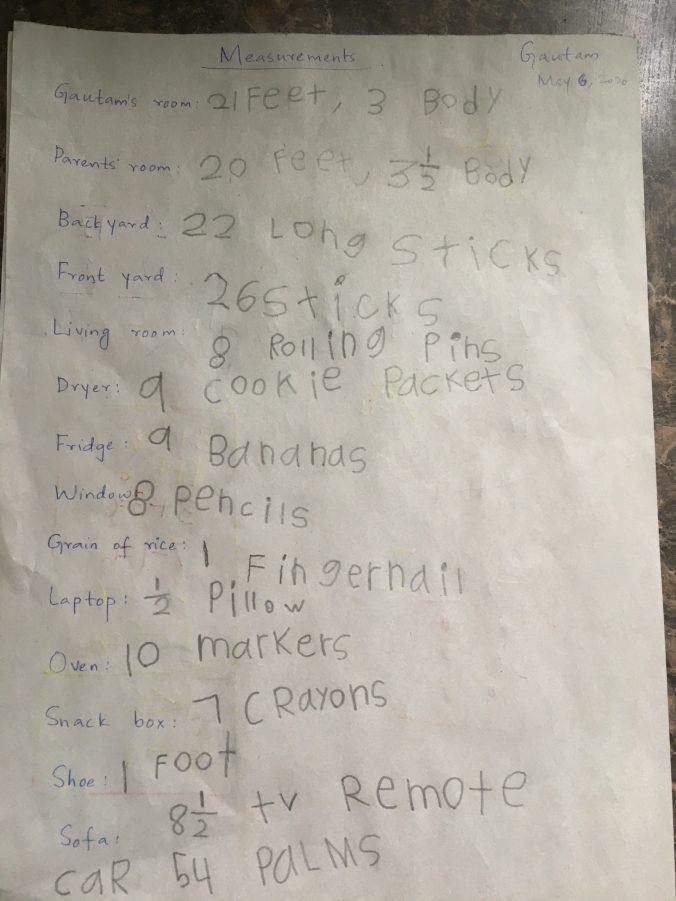 Measurements
Gautam
May 6, 2020
Gautam's room: 21 Feet, 3 Body
Parents' room: 20 Feet, 3 1/2 Body
Backyard: 22 Long Sticks
Front yard: 26 Sticks
Living room: 8 Rolling Pins
Dryer: 9 cookie Packets
Fridge: 9 Bananas
Window: 8 Pencils
Grain of rice: 1 Fingernail
Laptop: 1/2 Pillow
Oven: 10 markers
Snack box: 7 CRayons
Shoe: 1 Foot
Sofa: 8 1/2 tv Remote
caR 54 PaLMS